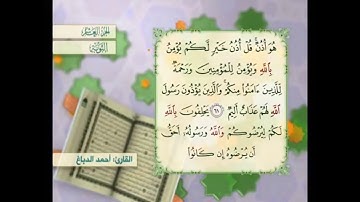 الجزء العاشر
التوبة
هُوَ أُذُنٌ قُلْ أُذُنُ خَيْرٍ لَّكُمْ يُؤْمِنُ
بِاللَّهِ وَيُؤْمِنُ لِلْمُؤْمِنِينَ وَرَحْمَةٌ
لِّلَّذِينَ ءَامَنُوا مِنكُمْ وَالَّذِينَ يُؤْذُونَ رَسُولَ
اللَّهِ لَهُمْ عَذَابٌ أَلِيمٌ ٦١ يَحْلِفُونَ بِاللَّهِ
لَكُمْ لِيُرْضُوكُمْ وَاللَّهُ وَرَسُولُهُ أَحَقُّ
أَن يُرْضُوهُ إِن كَانُوا
القارئ: أحمد الدباغ